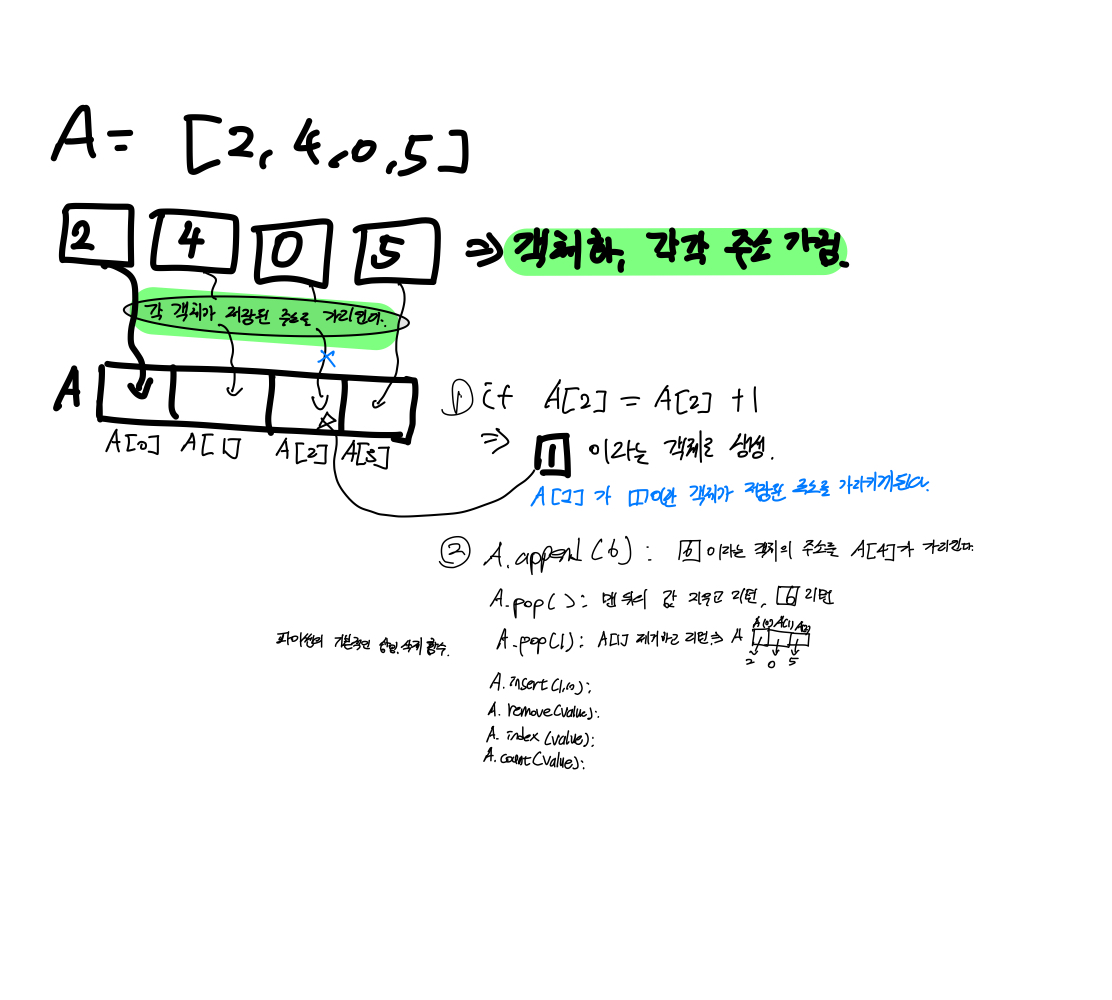 A = [2, 4, 0, 5]
2 4 0 5 ⇒ 객체화, 각각 주소 가짐.
각 객체가 저장된 주소를 가리킨다.
A
A[0] A[1] A[2] A[3]
① if A[2] = A[2] + 1
⇒ 1 이라는 객체로 생성.
A[2]가 1이란 객체가 저장된 주소를 가리키게된다.
② A.append(6) : 6 이라는 객체의 주소를 A[4]가 가리킨다.
A.pop( ) : 맨 뒤의 값 지우고 리턴, 6 리턴
A.pop(1) : A[1] 제거하고 리턴 ⇒ A
A[0] A[1] A[2]
2 0 5
파이썬의 기본적인 삽입, 삭제 함수.
A. insert(1,10):
A. remove(value):
A. index (value):
A. count(value):